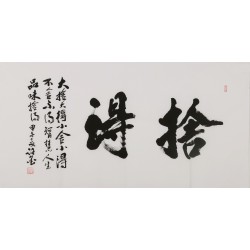 捨得
大捨大得小舍小得
不舍不得智慧人生
品味捨得